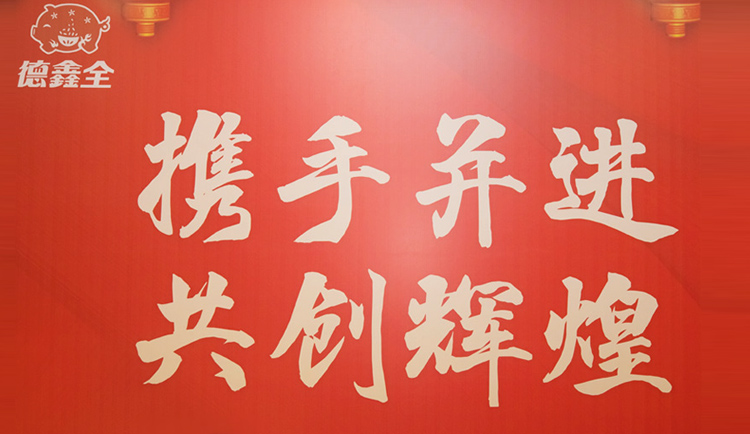 德鑫全
携手并进
共创辉煌